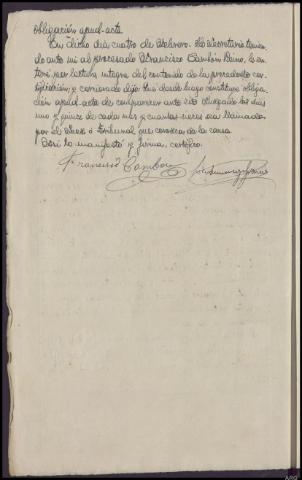 obligación apud-acta
En dicho dia cuatro de Febrero. El Secretario tenien
do ante mi al procesado Francisco Cambori le en
teré por lectura integra del contenido de la precedente
y cerciorado dijo: Que desde luego constituye obliga
ción apud-acta de comparecer ante este Juzgado los dias
uno y quince de cada mes y cuantas veces sea llamado
por el Juez ó tribunal que conozca de la causa.
Asi lo manifestó y firma, certifico.
Francisco Cambori